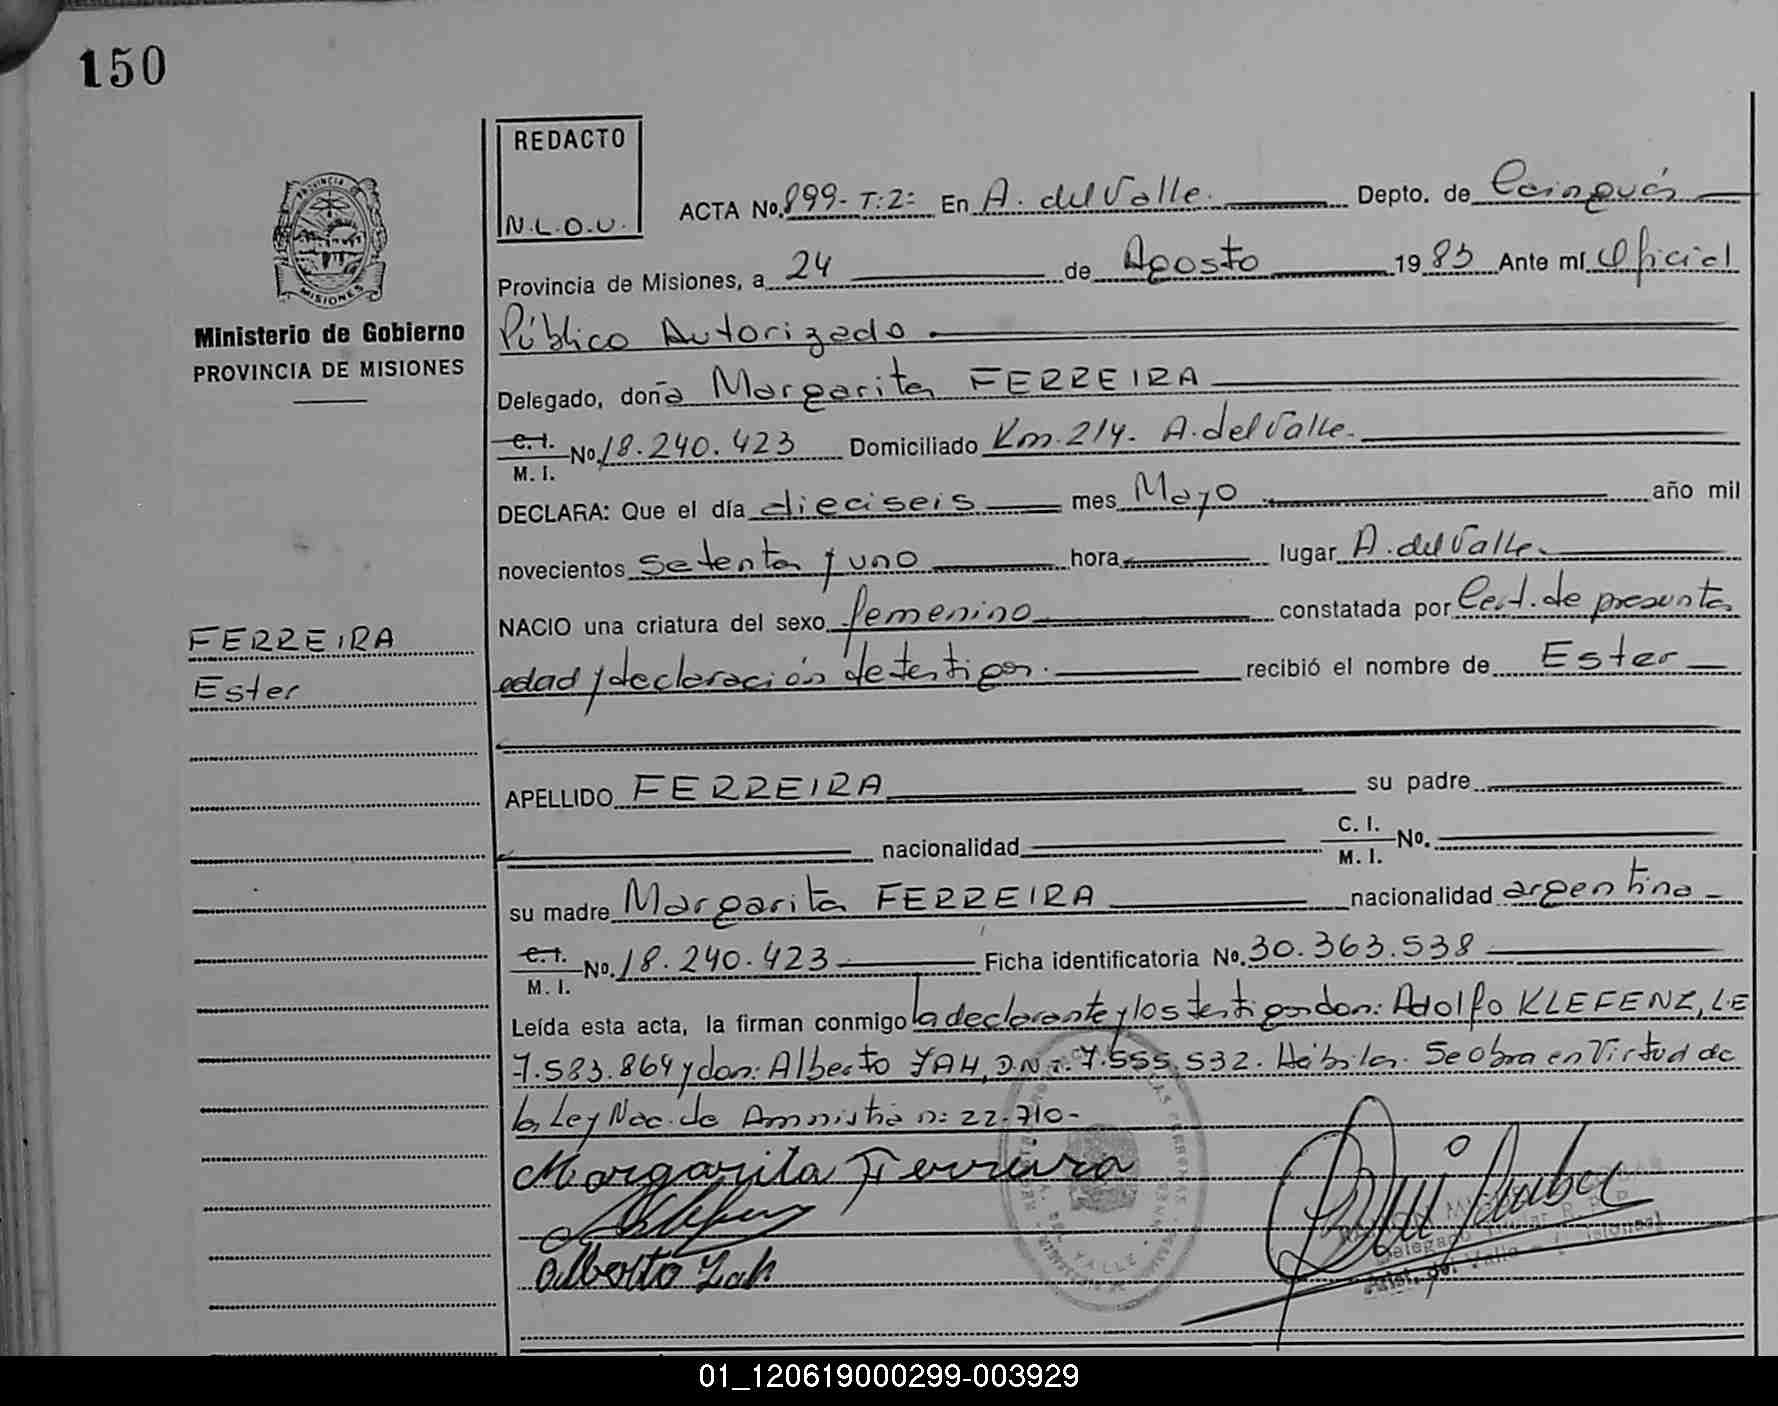 150
REDACTO
N.L.O.U.
ACTA No. 899- T:2: En A. del Valle. Depto. de Cainguás
Provincia de Misiones, a 24 de Agosto 1983 Ante mí Oficial
Público Autorizado
Delegado, doña Margarita FERREIRA
C. I. No. 18.240.423 Domiciliado Km. 214. A. del Valle.
M. I.
DECLARA: Que el día dieciseis mes Mayo año mil
novecientos setenta y uno hora lugar A. del Valle.
NACIO una criatura del sexo femenino constatada por Cert. de presunta
edad y declaración de testigos. recibió el nombre de Ester
APELLIDO FERREIRA su padre
nacionalidad C. I. No.
M. I.
su madre Margarita FERREIRA nacionalidad argentina
C. I. No. 18.240.423 Ficha identificatoria No. 30.363.538
M. I.
Leída esta acta, la firman conmigo la declarante y los testigos don: Adolfo KLEFENZ, L.E
7.583.864 y don: Alberto ZAH, D.N.I. 7.555.532. Hábiles. Se obra en Virtud de
la Ley Nac. de Amnistia n: 22.710-
Margarita Ferreira
Alberto Zah
PROVINCIA DE
MISIONES
Ministerio de Gobierno
PROVINCIA DE MISIONES
FERREIRA
Ester
A. DEL VALLE
Delegado Titular R. P.
Arist. del Valle - (Misiones)
01_120619000299-003929